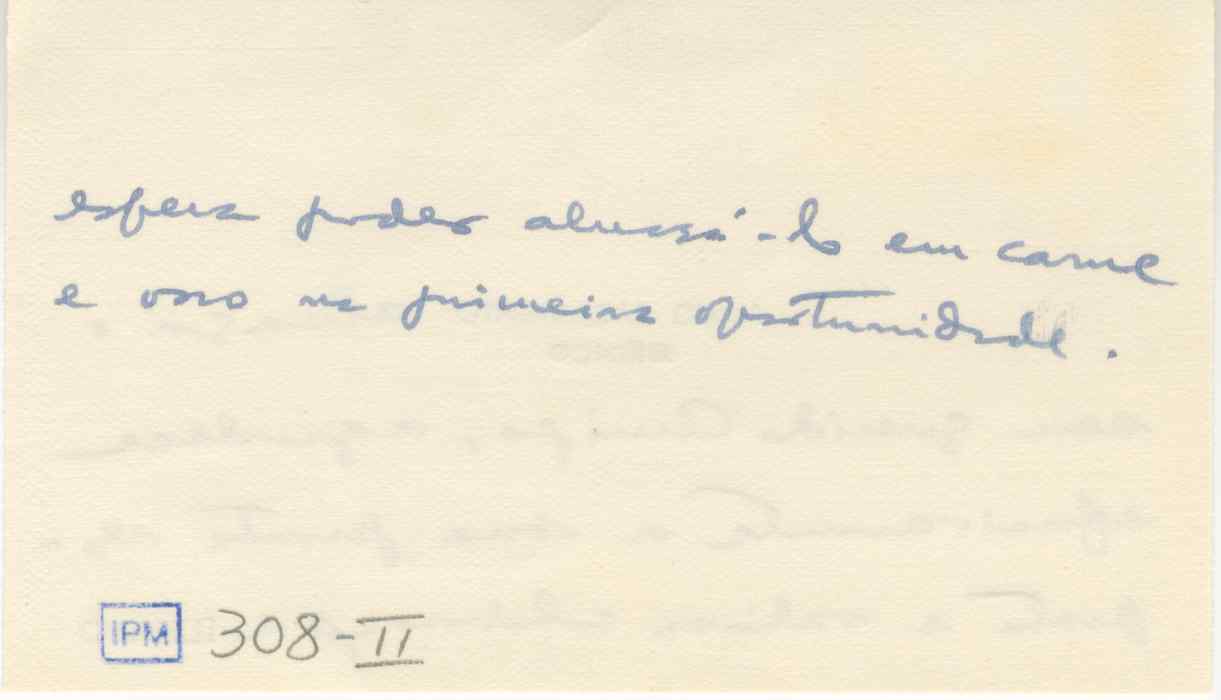 espera poder abraçá-lo em carne
e osso na primeira oportunidade.
IPM 308-II